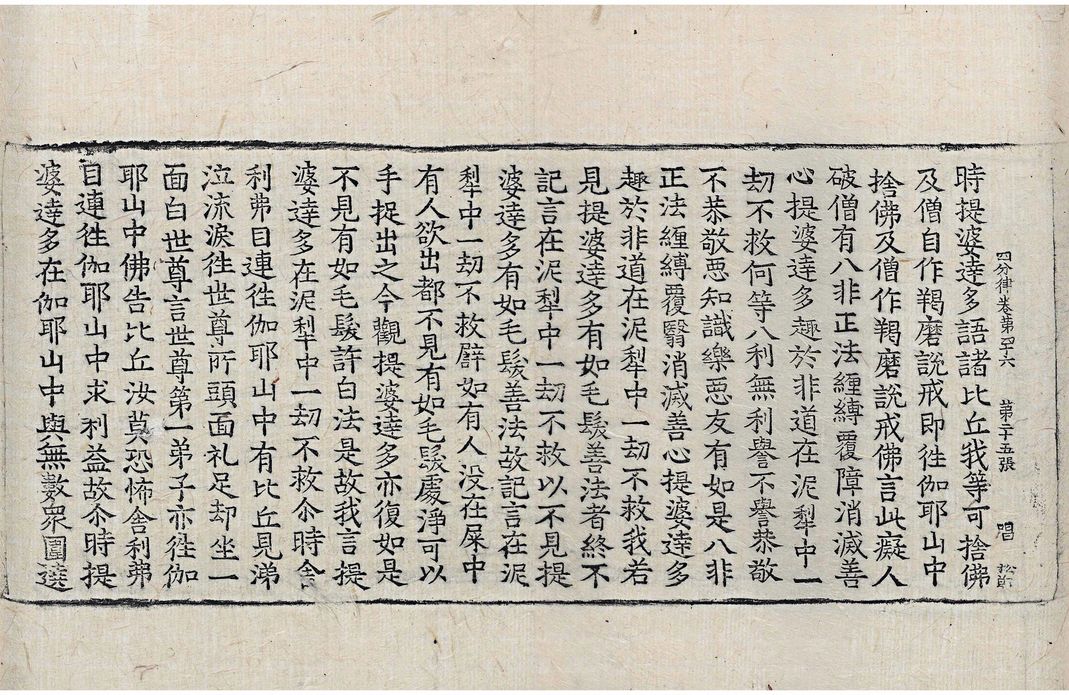 四分律卷第四十六　第二十五張　唱　松節
時提婆達多語諸比丘我等可捨佛
及僧自作羯磨說戒即徃伽耶山中
捨佛及僧作羯磨說戒佛言此癡人
破僧有八非正法纏縛覆障消滅善
心提婆達多趣於非道在泥犁中一
劫不救何等八利無利譽不譽恭敬
不恭敬惡知識樂惡友有如是八非
正法纏縛覆翳消滅善心提婆達多
趣於非道在泥犁中一劫不救我若
見提婆達多有如毛髮善法者終不
記言在泥犁中一劫不救以不見提
婆達多有如毛髮善法故記言在泥
犁中一劫不救譬如有人没在屎中
有人欲出都不見有如毛髮處淨可以
手捉出之今觀提婆達多亦復如是
不見有如毛髮許白法是故我言提
婆達多在泥犁中一劫不救尒時舍
利弗目連徃伽耶山中有比丘見涕
泣流淚徃世尊所頭面礼足却坐一
面白世尊言世尊第一弟子亦徃伽
耶山中佛告比丘汝莫恐怖舍利弗
目連徃伽耶山中求利益故尒時提
婆達多在伽耶山中與無數衆圍遶